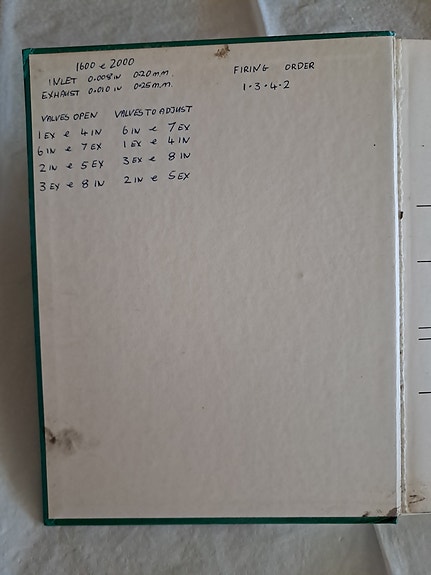 1600 e 2000
INLET 0.008 IN 0.20 m.m.
EXHAUST 0.010 IN 0.25 m.m.
FIRING ORDER
1.3.4.2
VALVES OPEN VALVES TO ADJUST
1 EX e 4 IN 6 IN e 7 EX
6 IN e 7 EX 1 EX e 4 IN
2 IN e 5 EX 3 EX e 8 IN
3 EX e 8 IN 2 IN e 5 EX